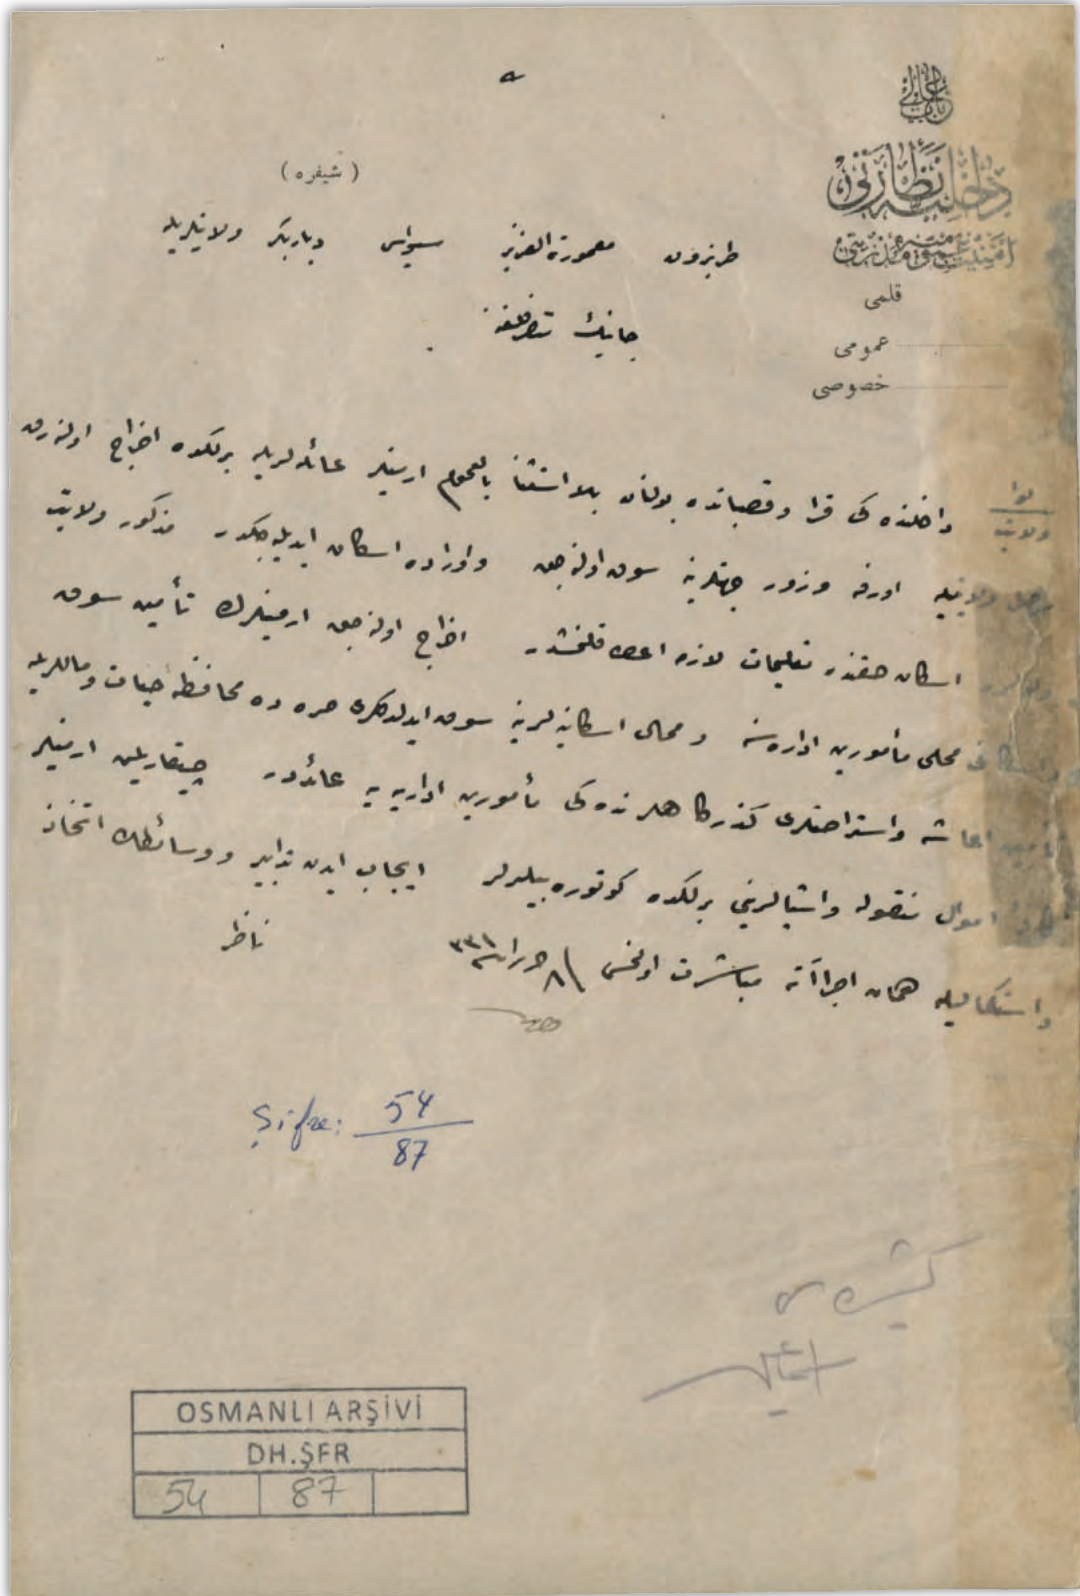 باب عالی
داخلیه نظارتی
امنیت عمومیه مدیریتی
قلمی
عمومی
خصوصی
(شیفره)
طربزون معمورة العزیز سیواس دیاربکر ولایتلریله
جانیك متصرفلغنه
لوا
ولایت
داخلنده كی قرا وقصباتده بولنان بلا استثنا بالعموم ارمنیلر عائله لریله برلكده اخراج اولنه رق
موصل ولایتیله اورفه وزور جهتلرینه سوق اولنه جق واوراده اسكان ایدیله جكدر مذكور ولایت
اسكان حقنده تعلیمات لازمه اعطا قلنمشدر اخراج اولنه جق ارمنیلرك تأمین سوق
محلی مأمورین اداره سنه ومحال اسكانیه لرینه سوق ایدلدكلری صره ده محافظۀ حیات وماللریله
اعاشه واستراحتلری گذرگاهلرنده كی مأمورین اداریه یه عائددر چیقاریلان ارمنیلر
اموال منقوله واشیالرینی برلكده كوتوره بیلیرلر ایجاب ایدن تدابیر ووسائطك اتخاذ
واستكمالیله همان اجراآته مباشرت اولنمسی ٨ حزیران سنه ٣٣١
ناظر
Şifre: 54
87
OSMANLI ARŞİVİ
DH.ŞFR
54 87